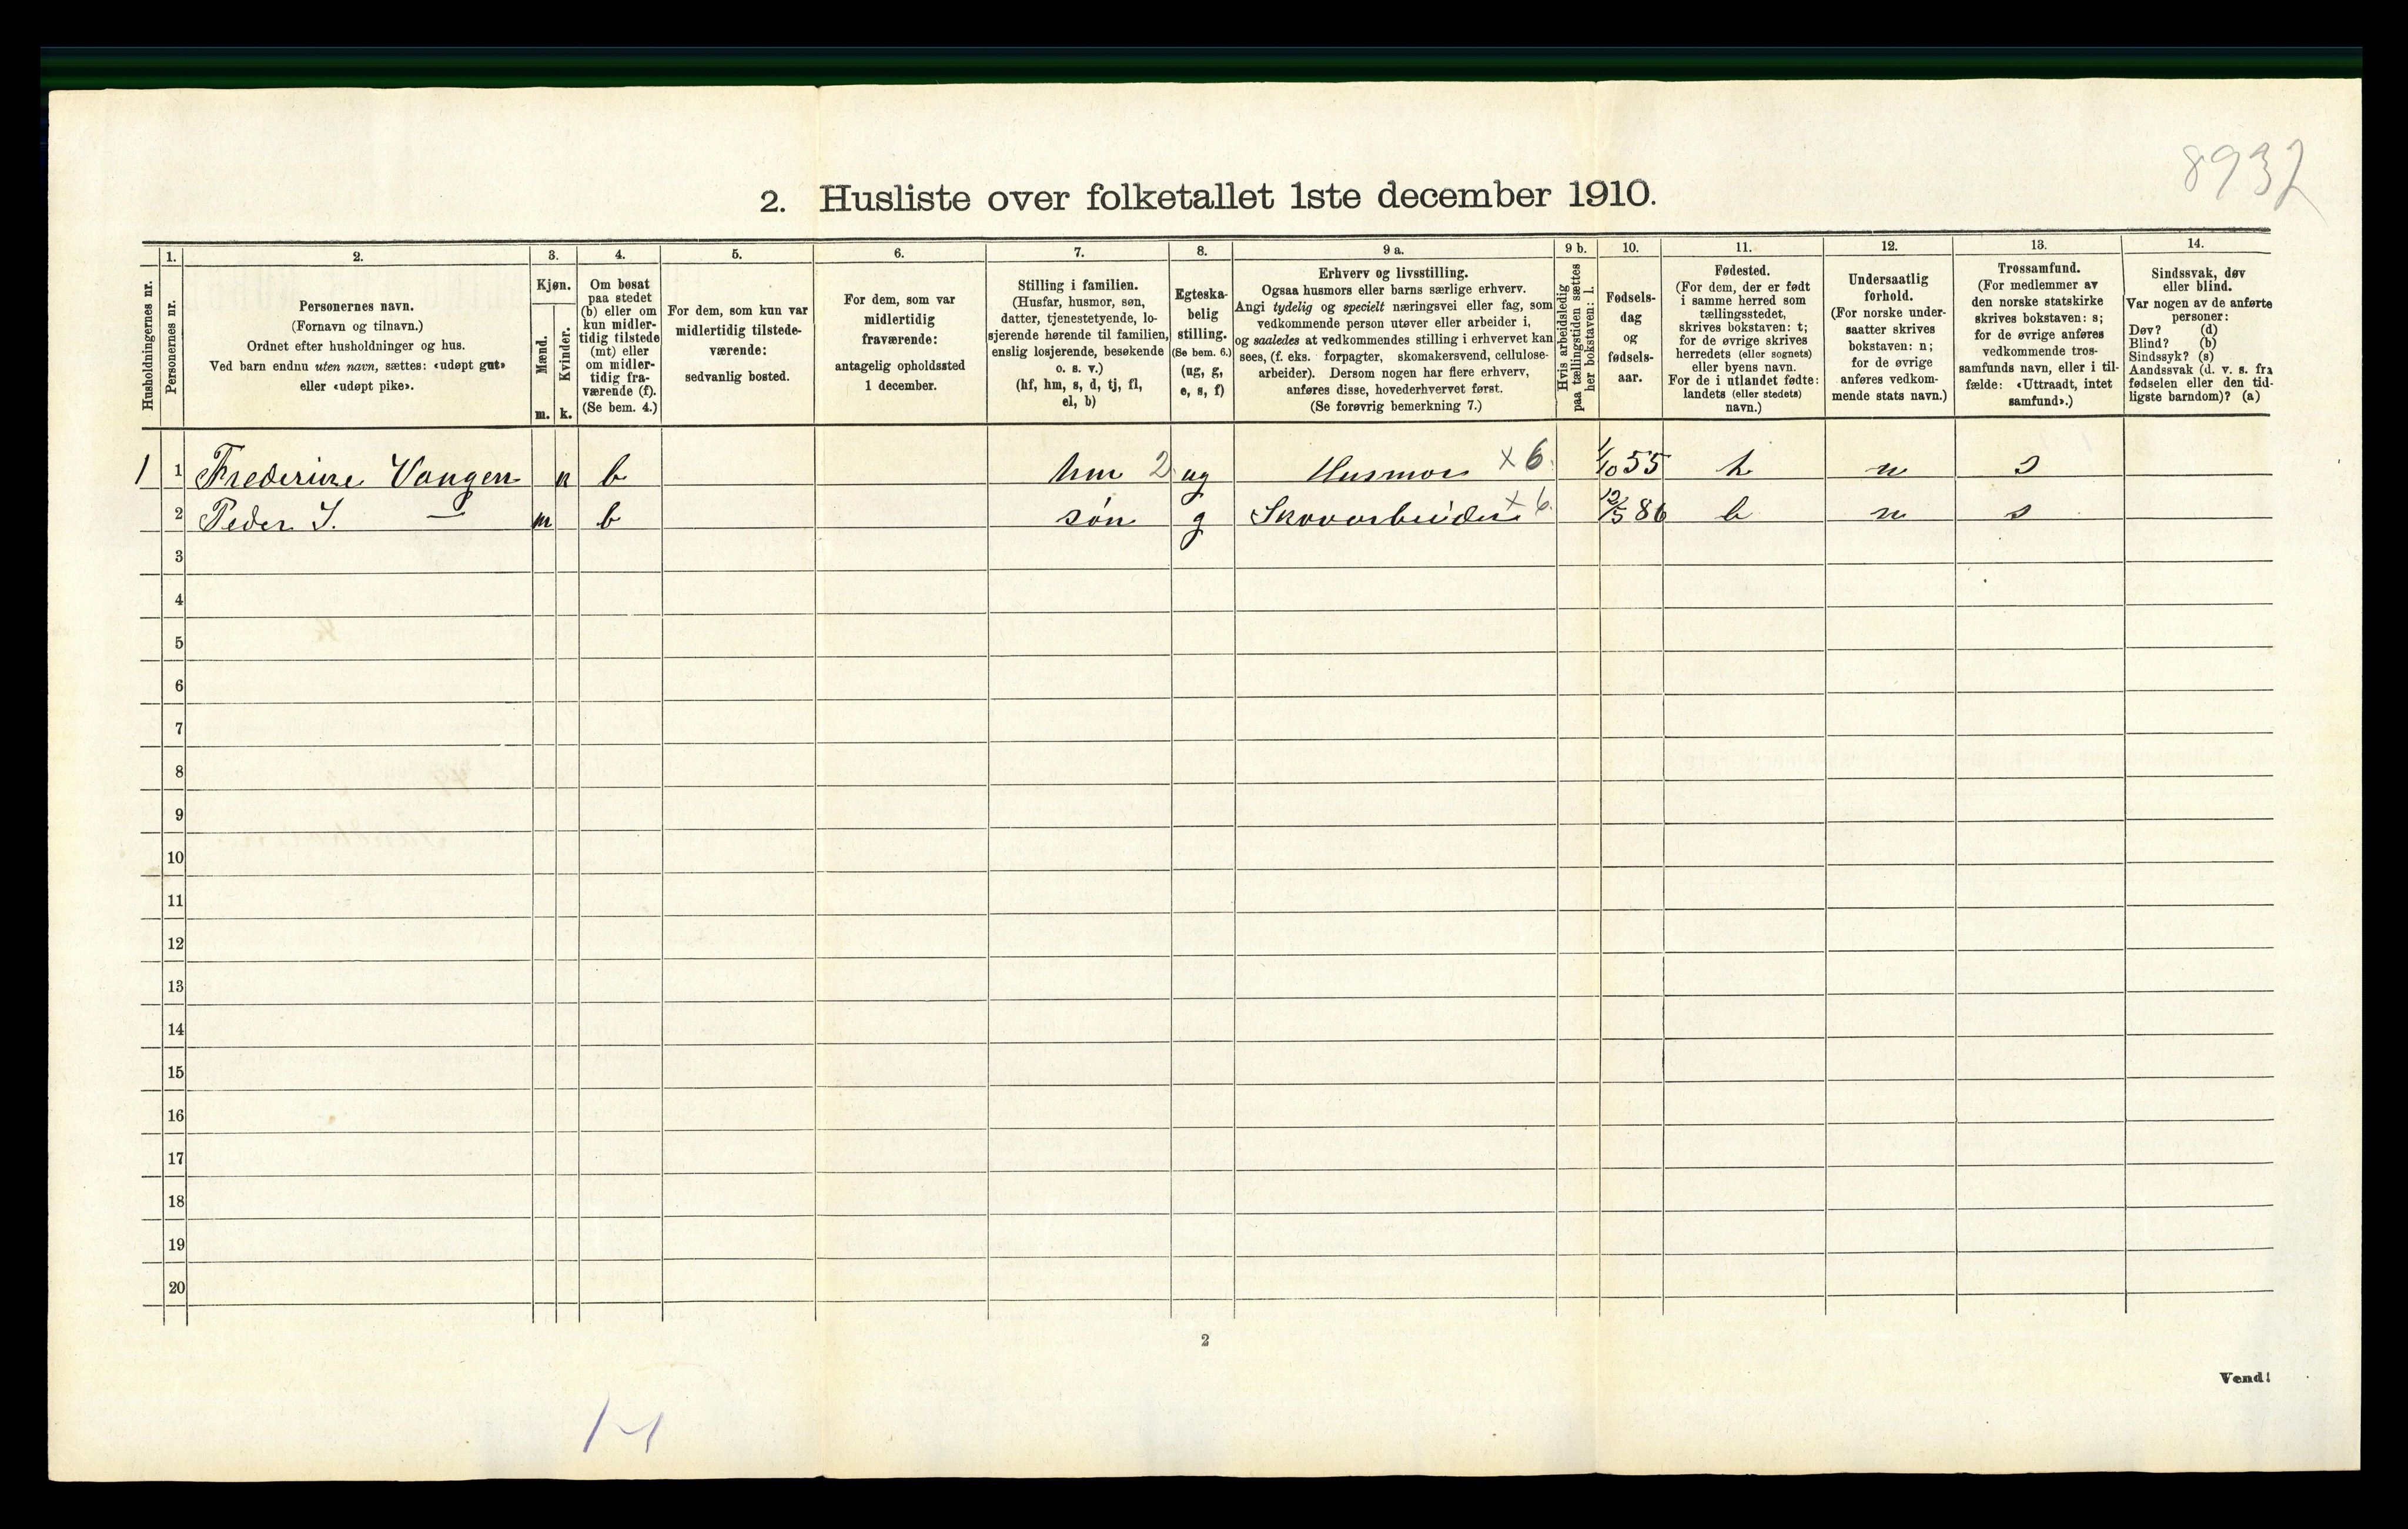 8932
2. Husliste over folketallet 1ste december 1910.
Husholdningernes nr.
1.
Personernes nr.
2.
Personernes navn.
(Fornavn og tilnavn.)
Ordnet efter husholdninger og hus.
Ved barn endnu uten navn, sættes: «udøpt gut»
eller «udøpt pike».
3.
Kjøn.
Mænd.
m.
Kvinder.
k.
4.
Om bosat
paa stedet
(b) eller om
kun midler-
tidig tilstede
(mt) eller
om midler-
tidig fra-
værende (f).
(Se bem. 4.)
5.
For dem, som kun var
midlertidig tilstede-
værende:
sedvanlig bosted.
6.
For dem, som var
midlertidig
fraværende:
antagelig opholdssted
1 december.
7.
Stilling i familien.
(Husfar, husmor, søn,
datter, tjenestetyende, lo-
sjerende hørende til familien,
enslig losjerende, besøkende
o. s. v.)
(hf, hm, s, d, tj, fl,
el, b)
8.
Egteska-
belig
stilling.
(Se bem. 6.)
(ug, g,
e, s, f)
9 a.
Erhverv og livsstilling.
Ogsaa husmors eller barns særlige erhverv.
Angi tydelig og specielt næringsvei eller fag, som
vedkommende person utøver eller arbeider i,
og saaledes at vedkommendes stilling i erhvervet kan
sees, (f. eks. forpagter, skomakersvend, cellulose-
arbeider). Dersom nogen har flere erhverv,
anføres disse, hovederhvervet først.
(Se forøvrig bemerkning 7.)
9 b.
Hvis arbeidsledig
paa tællingstiden sættes
her bokstaven: l.
10.
Fødsels-
dag
og
fødsels-
aar.
11.
Fødested.
(For dem, der er født
i samme herred som
tællingsstedet,
skrives bokstaven: t;
for de øvrige skrives
herredets (eller sognets)
eller byens navn.
For de i utlandet fødte:
landets (eller stedets)
navn.)
12.
Undersaatlig
forhold.
(For norske under-
saatter skrives
bokstaven: n;
for de øvrige
anføres vedkom-
mende stats navn.)
13.
Trossamfund.
(For medlemmer av
den norske statskirke
skrives bokstaven: s;
for de øvrige anføres
vedkommende tros-
samfunds navn, eller i til-
fælde: «Uttraadt, intet
samfund».)
14.
Sindssvak, døv
eller blind.
Var nogen av de anførte
personer:
Døv? (d)
Blind? (b)
Sindssyk? (s)
Aandssvak (d. v. s. fra
fødselen eller den tid-
ligste barndom)? (a)
1 1 Frederine Vangen k b hm 2 ug Husmor × 6. 1/10 55 n s
2 Peder I. — m b søn g Skovarbeider × 6. 12/5 86 n s
3
4
5
6
7
8
9
10
11
12
13
14
15
16
17
18
19
20
2
Vend!